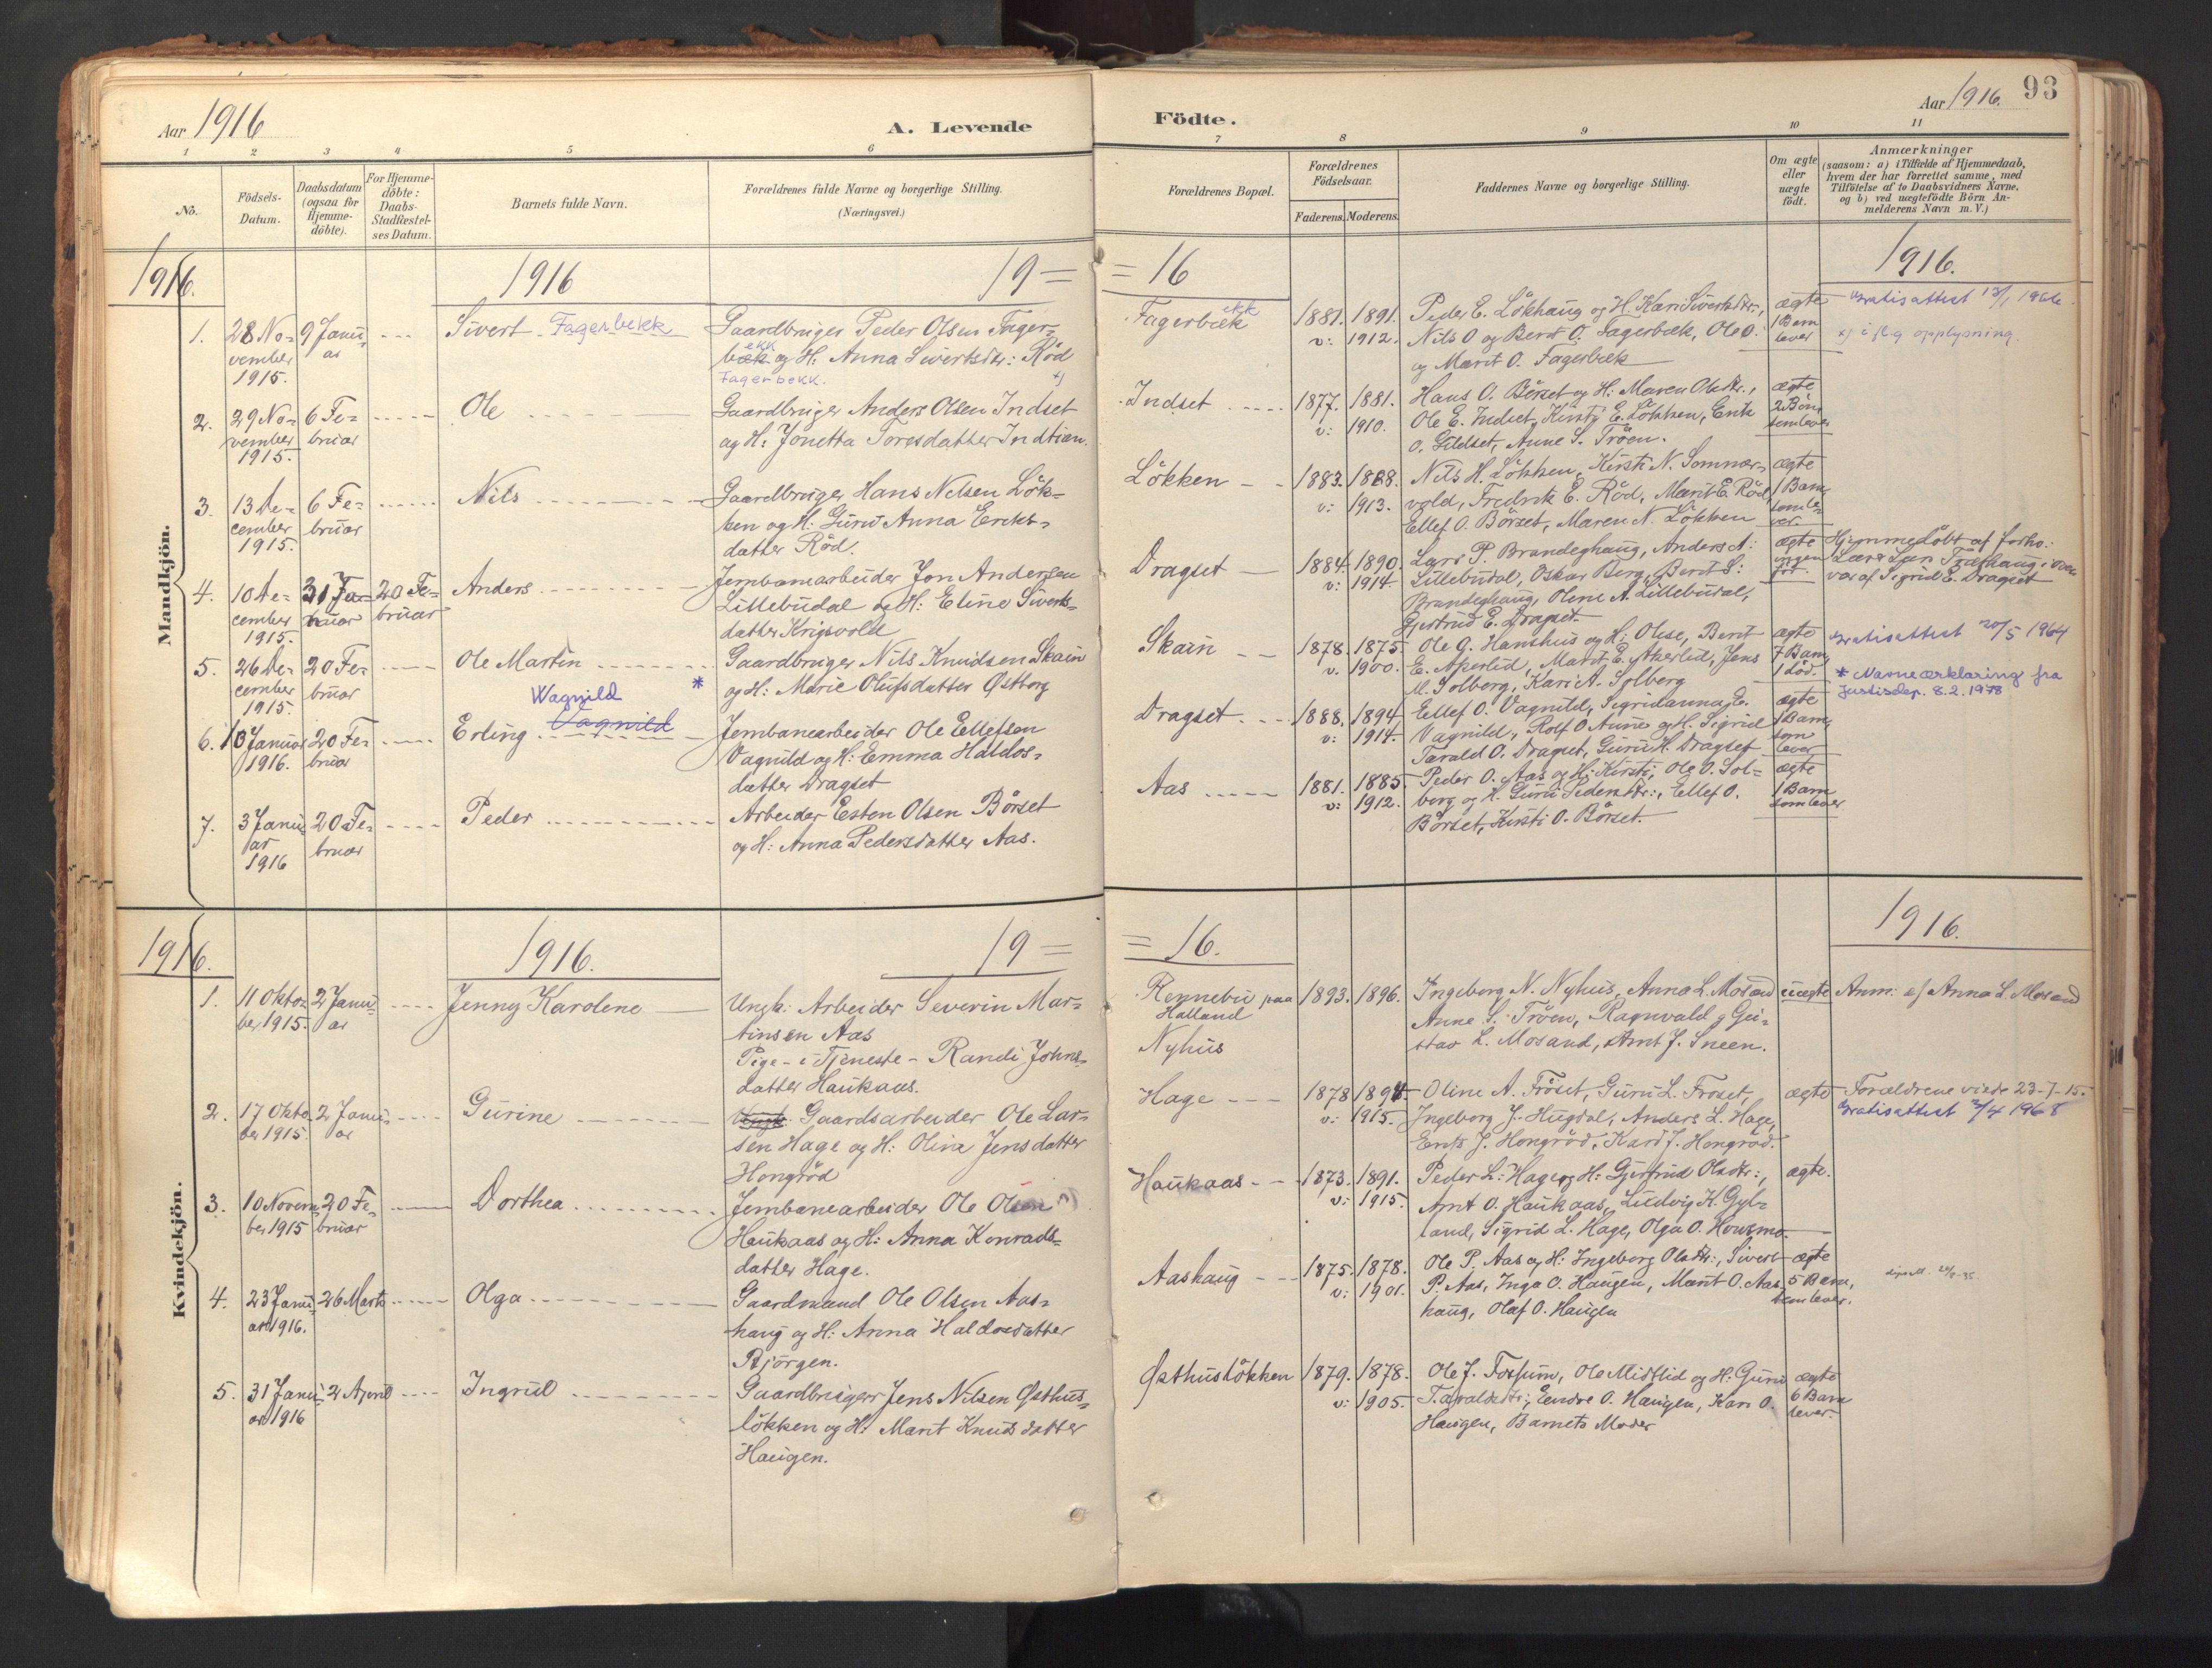 Aar 1916
A. Levende
Födte.
Aar 1916. 93
1 2 3 4 5 6 7 8 9 10 11
No.
Födsels-
Datum.
Daabsdatum
(ogsaa for
Hjemme-
döbte).
For Hjemme-
döbte:
Daabs-
Stadfæstel-
ses Datum.
Barnets fulde Navn.
Forældrenes fulde Navne og borgerlige Stilling.
(Næringsvei.)
Forældrenes Bopæl.
Forældrenes
Födselsaar.
Faderens. Moderens.
Faddernes Navne og borgerlige Stilling.
Om ægte
eller
uægte
födt.
Anmærkninger
(saasom: a) i Tilfælde af Hjemmedaab,
hvem der har forrettet samme, med
Tilföielse af to Daabsvidners Navne,
og b) ved uægtefödte Börn An-
melderens Navn m. V.)
Mandkjön.
1916. 1916 19= =16 1916.
1. 28 No-
vember
1915.
9 Janu-
ar
Sivert Fagerbekk
Gaardbruger Peder Olsen Fager-
bæk og H: Anna Sivertsdtr: Röd
ekk
Fagerbekk. x)
Fagerbæk
ekk
1881. 1891.
v: 1912.
Peder E. Lökhaug og H: Kari Sivertsdtr:,
Nils O og Berit O. Fagerbæk, Ole O.
og Marit O. Fagerbæk
ægte
1 Barn
lever
Gratisattest 13/1 1966
x) iflg opplysning.
2. 29 No-
vember
1915.
6 Fe-
bruar
Ole
Gaardbruger Anders Olsen Indset
og H: Jonetta Toresdatter Indtian.
Indset
1877. 1881.
v: 1910.
Hans O. Börset og H: Maren Olsdtr.,
Ole E. Indset, Kirsti E. Lökken, Erik
O. Gildset, Anne S. Tröen.
ægte
2 Börn
som lever
3. 13 De-
cember
1915.
6 Fe-
bruar
Nils
Gaardbruger Hans Nilsen Lök-
ken og H: Guru Anna Eriks-
datter Röd.
Lökken
1883. 1888.
v: 1913.
Nils H. Lökken, Kirsti N. Somner-
vold, Fredrik E. Röd, Marit E. Röd,
Ellef O. Börset, Maren N. Lökken
ægte
1 Barn
som le-
ver.
4. 10 De-
cember
1915.
31 Ja-
nuar
20 Fe-
bruar
Anders
Jernbanearbeider Jon Andersen
Lillebudal og H: Eline Siverts-
datter Krigsvold
Dragset
1884. 1890.
v: 1914.
Lars P. Brandeghaug, Anders A:
Lillebudal, Oskar Berg, Berit S:
Brandeghaug, Oline A. Lillebudal,
Gjertrud E. Dragset.
ægte
ingen
för
Hjemmedöbt af forho:
var af Sigrid E. Dragset
5. 26 De-
cember
1915.
20 Fe-
bruar
Ole Martin
Gaardbruger Nils Knudsen Skarin
og H: Marie Olufsdatter Østborg
Skarin
1878. 1875.
v. 1900.
Ole G. Hanshus og H: Olise, Berit
E. Akerlid, Marit E. Akerlid, Jens
M. Solberg, Kari A. Solberg
ægte
7 Barn,
1 död.
Gratisattest 20/5 1964
6. 10 Januar
1916.
20 Fe-
bruar
Erling Vagnild
Wagnild *
Jernbanearbeider Ole Ellefsen
Vagnild og H: Emma Haldos-
datter Dragset
Dragset
1888. 1894.
v: 1914.
Ellef O. Vagnild, Sigridanna E.
Vagnild, Rolf O Aune og H: Sigrid
Tarald O. Dragset, Guru H. Dragset
ægte
1 Barn,
som
lever
* Navneærklæring fra
Justisdep. 8.2.1978
7. 3 Janu-
ar
1916
20 Fe-
bruar
Peder
Arbeider Esten Olsen Börset
og H: Anna Pedersdatter Aas.
Aas
1881. 1885.
v: 1912.
Peder O. Aas og H: Kirsti, Ole O. Sol-
berg og H. Guru Pedersdtr:, Ellef O.
Börset, Kirsti O. Börset.
ægte
1 Barn
som lever
Kvindekjön.
1916. 1916. 19= =16. 1916.
1. 11 Okto-
ber 1915.
2 Janu-
ar
Jenny Karoline
Ungk: Arbeider Severin Mar-
tinsen Aas
Pige - i Tjeneste - Randi Johns-
datter Haukaas.
Rennebu paa
Halland
Nyhus
1893. 1896.
Ingeborg N. Nyhus, Anna L. Mosand
Anne S. Tröen, Ragnvald og Gu-
stav L. Mosand, Arnt J. Sneen.
uægte
Anm: af Anna L. Mosand
2. 17 Okto-
ber 1915.
2 Janu-
ar
Gurine
Ungk: Gaardsarbeider Ole Lar-
sen Hage og H: Oline Jensdatter
Hongröd
Hage
1878 1894
v: 1915.
Oline A. Fröset, Guru L. Froset,
Ingeborg J. Hugdal, Anders L. Hage,
Erik J. Hongröd, Kari J. Hongröd.
ægte
Forældrene viede 23-7-15.
Gratisattest 2/4 1968
3. 10 Novem-
ber 1915
20 Fe-
bruar
Dorthea
Jernbanearbeider Ole Olsen
Haukaas og H: Anna Konrads-
datter Hage.
Haukaas
1873. 1891.
v: 1915.
Peder L: Hage og H: Gjertrud Olsdtr:,
Arnt O. Haukaas, Ludvig K. Gyl-
land, Sigrid L. Hage, Olga O. Houzmo.
ægte.
4. 23 Janu-
ar 1916.
26 Marts
Olga
Gaardmand Ole Olsen Aas-
haug og H: Anna Haldosdatter
Bjørgen.
Aashaug
1875. 1878.
v: 1901.
Ole P. Aas og H: Ingeborg Olsdtr:, Sivert
P. Aas, Inga O. Haugen, Marit O. Aas-
haug, Olaf O. Haugen
ægte
5 Barn,
som lever.
5. 31 Janu-
ar 1916
2 April
Ingrid
Gaardbruger Jens Nilsen Østhus-
lökken og H: Marit Knudsdatter
Haugen.
Østhuslökken
1879. 1878.
v: 1905.
Ole J. Forsum, Ole Midtlid og H: Guru
Taraldsdtr:, Eendre O. Haugen, Kari O.
Haugen, Barnets Moder
ægte
6 Barn
lever.